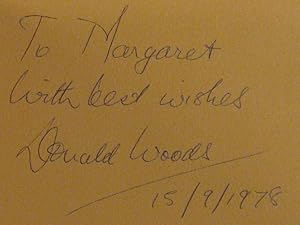 To Margaret
With best wishes
Donald Woods
15/9/1978